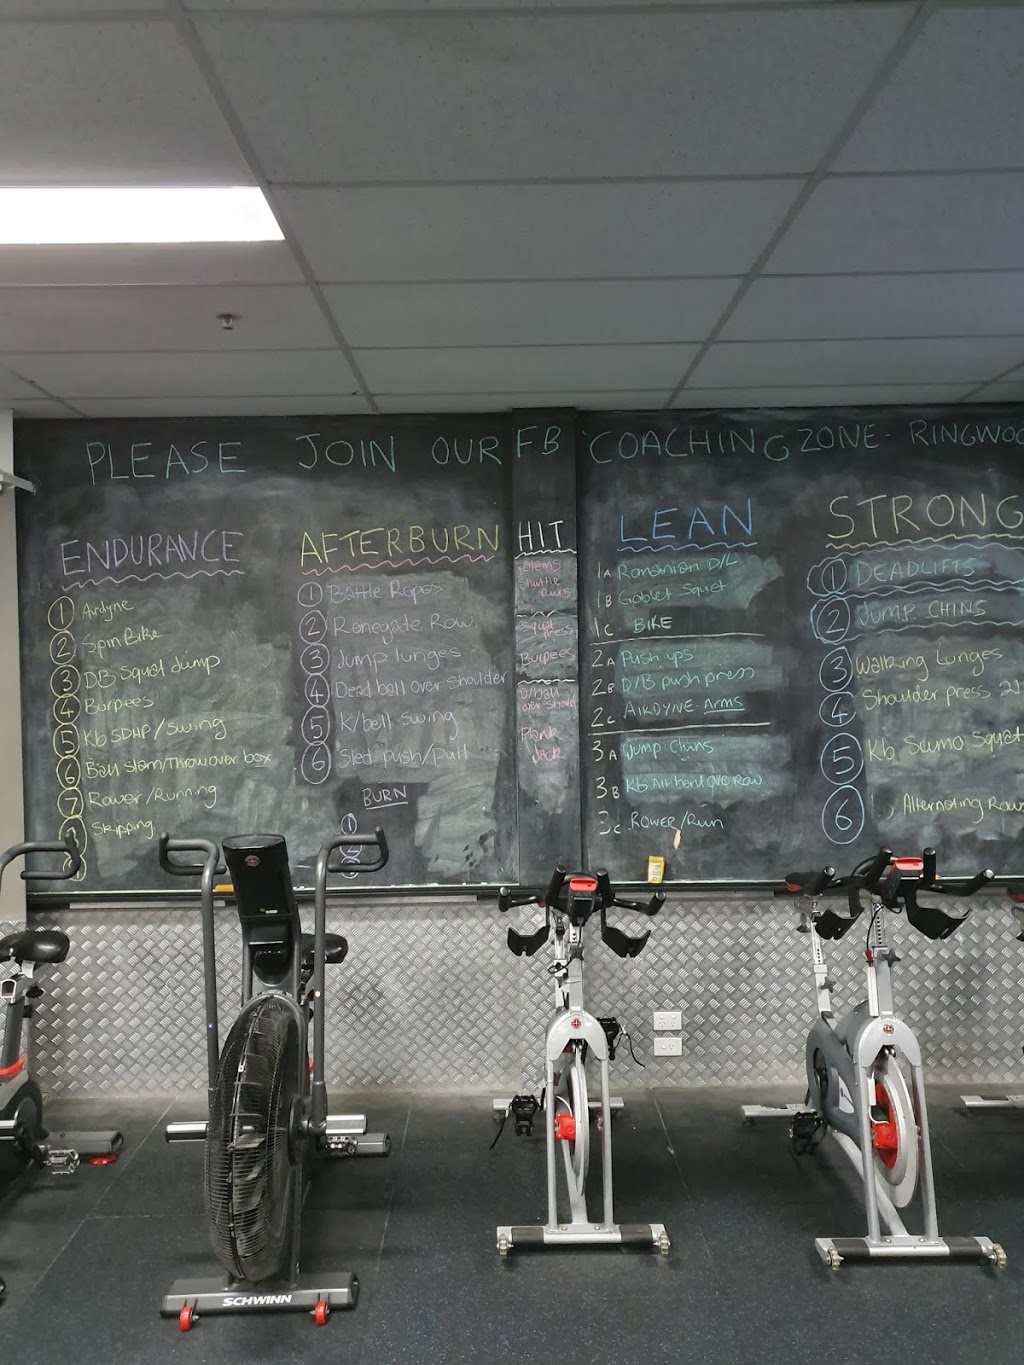 PLEASE JOIN OUR FB COACHING ZONE - RINGWOO
ENDURANCE
1 Airdyne
2 Spin Bike
3 DB Squat Jump
4 Burpees
5 Kb SDHP/Swing
6 Ball slam/Throw over box
7 Rower/Running
Skipping
AFTERBURN
1 Battle Ropes
2 Renegade Row.
3 Jump lunges
4 Dead ball over shoulder
5 K/bell swing
6 Sled push/pull
BURN
1
2
HIT
Shuttle
Runs
Squat
press
Burpees
D/ball
over should
Plank
Jack
LEAN
1A Romanian D/L
1B Goblet Squat
1C BIKE
2A Push ups
2B D/B push press
2C AIRDYNE ARMS
3A Jump Chins
3B Kb Alt bent ove Row
3C Rower/Run
STRONG
1 DEADLIFTS
2 JUMP CHINS
3 Walking Lunges
4 Shoulder press 21
5 Kb Sumo Squat
6 Alternating Row
SCHWINN